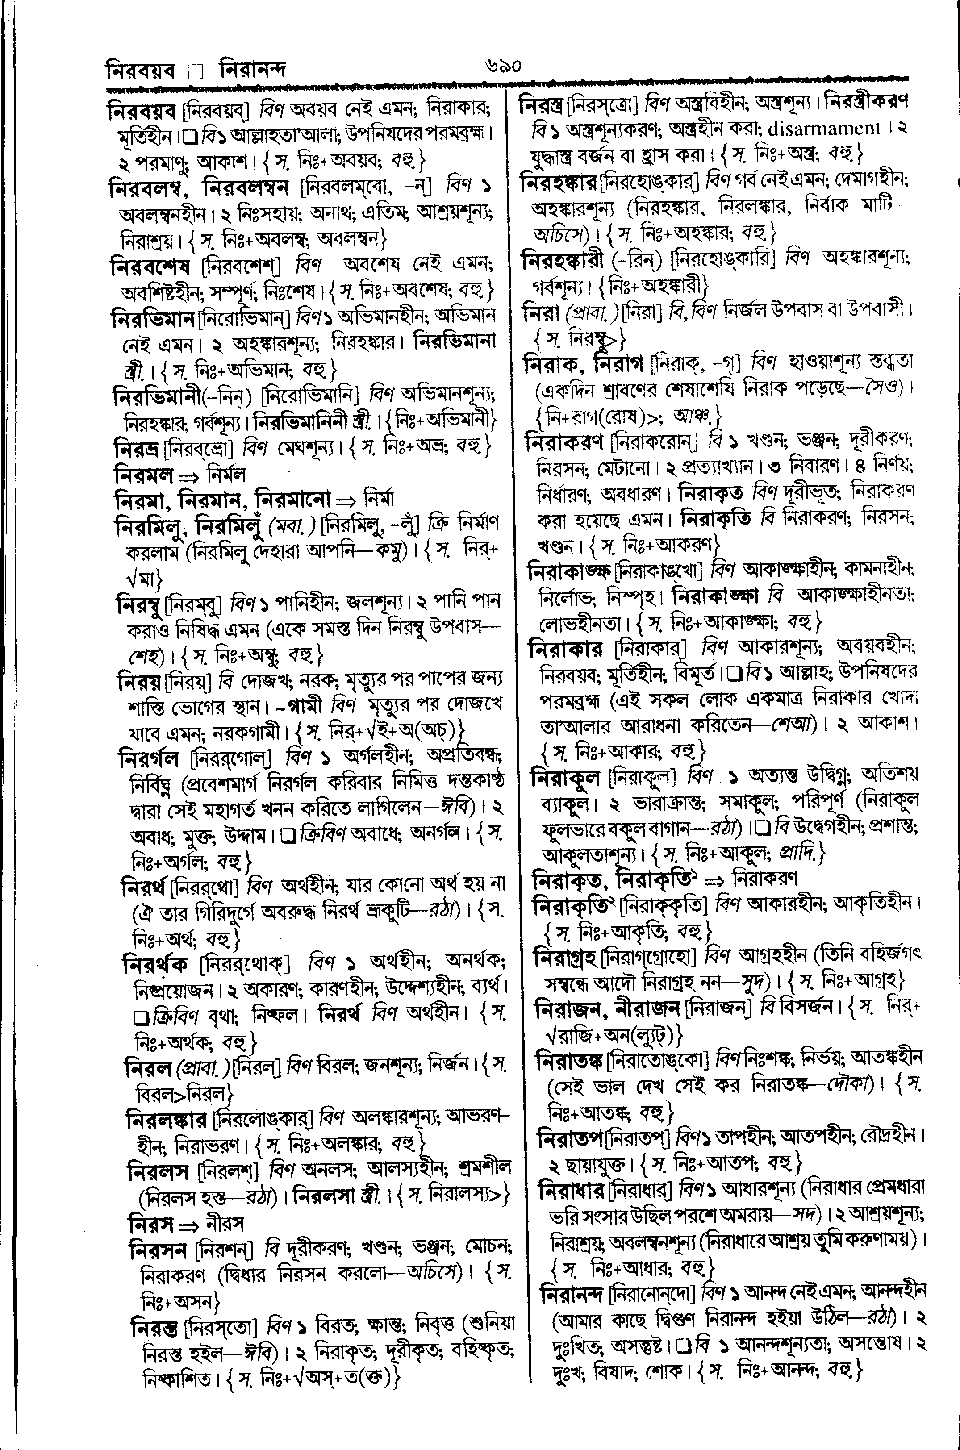 নিরবয়ব □ নিরানন্দ
৬৯০
নিরবয়ব [নিরবয়ব্] বিণ অবয়ব নেই এমন; নিরাকার;
মূর্তিহীন। □ বি ১ আল্লাহতা'আলা; উপনিষদের পরমব্রহ্ম।
২ পরমাণু; আকাশ। {স. নিঃ+অবয়ব; বহু}
নিরবলম্ব, নিরবলম্বন [নিরবলম্‌বো, -ন্] বিণ ১
অবলম্বনহীন। ২ নিঃসহায়; অনাথ; এতিম; আশ্রয়শূন্য;
নিরাশ্রয়। {স. নিঃ+অবলম্ব; অবলম্বন}
নিরবশেষ [নিরবশেশ্] বিণ অবশেষ নেই এমন;
অবশিষ্টহীন; সম্পূর্ণ; নিঃশেষ। {স. নিঃ+অবশেষ; বহু}
নিরভিমান [নিরোভিমান্] বিণ ১ অভিমানহীন; অভিমান
নেই এমন। ২ অহঙ্কারশূন্য; নিরহঙ্কার। নিরভিমানা
স্ত্রী.। {স. নিঃ+অভিমান; বহু}
নিরভিমানী (-নিন্) [নিরোভিমানি] বিণ অভিমানশূন্য;
নিরহঙ্কার; গর্বশূন্য। নিরভিমানিনী স্ত্রী.। {নিঃ+অভিমানী}
নিরভ্র [নিরবভ্রো] বিণ মেঘশূন্য। {স. নিঃ+অভ্র; বহু}
নিরমল ⇒ নির্মল
নিরমা, নিরমান, নিরমানো ⇒ নির্মা
নিরমিলু, নিরমিলুঁ (মবা.) [নিরমিলু, -লুঁ] ক্রি নির্মাণ
করলাম (নিরমিলু দেহারা আপনি—কমু)। {স. নির্+
√মা}
নিরম্বু [নিরম্‌বু] বিণ ১ পানিহীন; জলশূন্য। ২ পানি পান
করাও নিষিদ্ধ এমন (একে সমস্ত দিন নিরম্বু উপবাস—
শেহ)। {স. নিঃ+অম্বু; বহু}
নিরয় [নিরয়্] বি দোজখ; নরক; মৃত্যুর পর পাপের জন্য
শাস্তি ভোগের স্থান। -গামী বিণ মৃত্যুর পর দোজখে
যাবে এমন; নরকগামী। {স. নির্+√ই+অ(অচ্)}
নিরর্গল [নিরর্‌গোল্] বিণ ১ অর্গলহীন; অপ্রতিবন্ধ;
নির্বিঘ্ন (প্রবেশমার্গ নিরর্গল করিবার নিমিত্ত দন্তকাষ্ঠ
দ্বারা সেই মহাগর্ত খনন করিতে লাগিলেন—ঈবি)। ২
অবাধ; মুক্ত; উদ্দাম। □ ক্রিবিণ অবাধে; অনর্গল। {স.
নিঃ+অর্গল; বহু}
নিরর্থ [নিরর্‌থো] বিণ অর্থহীন; যার কোনো অর্থ হয় না
(ঐ তার গিরিদুর্গে অবরুদ্ধ নিরর্থ ভ্রূকুটি—রঠা)। {স.
নিঃ+অর্থ; বহু}
নিরর্থক [নিরর্‌থোক্] বিণ ১ অর্থহীন; অনর্থক;
নিষ্প্রয়োজন। ২ অকারণ; কারণহীন; উদ্দেশ্যহীন; ব্যর্থ।
□ ক্রিবিণ বৃথা; নিষ্ফল। নিরর্থ বিণ অর্থহীন। {স.
নিঃ+অর্থক; বহু}
নিরল (প্রাবা.) [নিরল্] বিণ বিরল; জনশূন্য; নির্জন। {স.
বিরল>নিরল}
নিরলঙ্কার [নিরলোঙ্কার্] বিণ অলঙ্কারশূন্য; আভরণ-
হীন; নিরাভরণ। {স. নিঃ+অলঙ্কার; বহু}
নিরলস [নিরলশ্] বিণ অনলস; আলস্যহীন; শ্রমশীল
(নিরলস হস্ত—রঠা)। নিরলসা স্ত্রী.। {স. নিরালস্য>}
নিরস ⇒ নীরস
নিরসন [নিরশন্] বি দূরীকরণ; খণ্ডন; ভঞ্জন; মোচন;
নিরাকরণ (দ্বিধার নিরসন করলো—অচিসে)। {স.
নিঃ+অসন}
নিরস্ত [নিরস্‌তো] বিণ ১ বিরত; ক্ষান্ত; নিবৃত্ত (শুনিয়া
নিরস্ত হইল—ঈবি)। ২ নিরাকৃত; দূরীকৃত; বহিষ্কৃত;
নিষ্কাশিত। {স. নিঃ+√অস্+ত(ক্ত)}
নিরস্ত্র [নিরস্‌ত্রো] বিণ অস্ত্রবিহীন; অস্ত্রশূন্য। নিরস্ত্রীকরণ
বি ১ অস্ত্রশূন্যকরণ; অস্ত্রহীন করা; disarmament। ২
যুদ্ধাস্ত্র বর্জন বা হ্রাস করা। {স. নিঃ+অস্ত্র; বহু}
নিরহঙ্কার [নিরহোঙ্কার্] বিণ গর্ব নেই এমন; দেমাগহীন;
অহঙ্কারশূন্য (নিরহঙ্কার, নিরলঙ্কার, নির্বাক মাটি—
অচিসে)। {স. নিঃ+অহঙ্কার; বহু}
নিরহঙ্কারী (-রিন্) [নিরহোঙ্কারি] বিণ অহঙ্কারশূন্য;
গর্বশূন্য। {নিঃ+অহঙ্কারী}
নিরা (প্রাবা.) [নিরা] বি, বিণ নির্জল উপবাস বা উপবাসী।
{স. নিরম্বু>}
নিরাক, নিরাগ [নিরাক্, -গ্] বিণ হাওয়াশূন্য স্তব্ধতা
(একদিন শ্রাবণের শেষাশেষি নিরাক পড়েছে—সেও)।
{নি+রাগ(রোষ)>; আঞ্চ.}
নিরাকরণ [নিরাকরোন্] বি ১ খণ্ডন; ভঞ্জন; দূরীকরণ;
নিরসন; মেটানো। ২ প্রত্যাখ্যান। ৩ নিবারণ। ৪ নির্ণয়;
নির্ধারণ; অবধারণ। নিরাকৃত বিণ দূরীভূত; নিরাকরণ
করা হয়েছে এমন। নিরাকৃতি বি নিরাকরণ; নিরসন;
খণ্ডন। {স. নিঃ+আকরণ}
নিরাকাঙ্ক্ষ [নিরাকাঙ্‌খো] বিণ আকাঙ্ক্ষাহীন; কামনাহীন;
নির্লোভ; নিস্পৃহ। নিরাকাঙ্ক্ষা বি আকাঙ্ক্ষাহীনতা;
লোভহীনতা। {স. নিঃ+আকাঙ্ক্ষা; বহু}
নিরাকার [নিরাকার্] বিণ আকারশূন্য; অবয়বহীন;
নিরবয়ব; মূর্তিহীন; বিমূর্ত। □ বি ১ আল্লাহ; উপনিষদের
পরমব্রহ্ম (এই সকল লোক একমাত্র নিরাকার খোদা
তা'আলার আরাধনা করিতেন—শেআ)। ২ আকাশ।
{স. নিঃ+আকার; বহু}
নিরাকুল [নিরাকুল্] বিণ ১ অত্যন্ত উদ্বিগ্ন; অতিশয়
ব্যাকুল। ২ ভারাক্রান্ত; সমাকুল; পরিপূর্ণ (নিরাকুল
ফুলভারে বকুল বাগান—রঠা)। □ বি উদ্বেগহীন; প্রশান্ত;
আকুলতাশূন্য। {স. নিঃ+আকুল; প্রাদি.}
নিরাকৃত, নিরাকৃতি১ ⇒ নিরাকরণ
নিরাকৃতি২ [নিরাক্‌কৃতি] বিণ আকারহীন; আকৃতিহীন।
{স. নিঃ+আকৃতি; বহু}
নিরাগ্রহ [নিরাগ্‌গ্রোহো] বিণ আগ্রহহীন (তিনি বহির্জগৎ
সম্বন্ধে আদৌ নিরাগ্রহ নন—সুদ)। {স. নিঃ+আগ্রহ}
নিরাজন, নীরাজন [নিরাজন্] বি বিসর্জন। {স. নির্+
√রাজি+অন(ল্যুট্)}
নিরাতঙ্ক [নিরাতোঙ্‌কো] বিণ নিঃশঙ্ক; নির্ভয়; আতঙ্কহীন
(সেই ভাল দেখ সেই কর নিরাতঙ্ক—দৌকা)। {স.
নিঃ+আতঙ্ক; বহু}
নিরাতপ [নিরাতপ্] বিণ ১ তাপহীন; আতপহীন; রৌদ্রহীন।
২ ছায়াযুক্ত। {স. নিঃ+আতপ; বহু}
নিরাধার [নিরাধার্] বিণ ১ আধারশূন্য (নিরাধার প্রেমধারা
ভরি সংসার উছিল পরশে অমরায়—সদ)। ২ আশ্রয়শূন্য;
নিরাশ্রয়; অবলম্বনশূন্য (নিরাধারে আশ্রয় তুমি করুণাময়)।
{স. নিঃ+আধার; বহু}
নিরানন্দ [নিরানোন্‌দো] বিণ ১ আনন্দ নেই এমন; আনন্দহীন
(আমার কাছে দ্বিগুণ নিরানন্দ হইয়া উঠিল—রঠা)। ২
দুঃখিত; অসন্তুষ্ট। □ বি ১ আনন্দশূন্যতা; অসন্তোষ। ২
দুঃখ; বিষাদ; শোক। {স. নিঃ+আনন্দ; বহু}